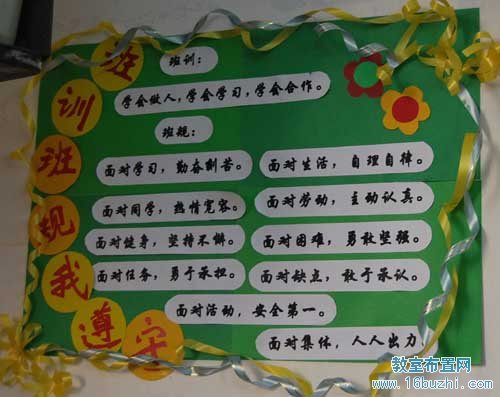 班训班规我遵守
班训：
学会做人，学会学习，学会合作。
班规：
面对学习，勤奋刻苦。 面对生活，自理自律。
面对同学，热情宽容。 面对劳动，主动认真。
面对健身，坚持不懈。 面对困难，勇敢坚强。
面对任务，勇于承担。 面对缺点，敢于承认。
面对活动，安全第一。
面对集体，人人出力。
教室布置网
www.16buzhi.com